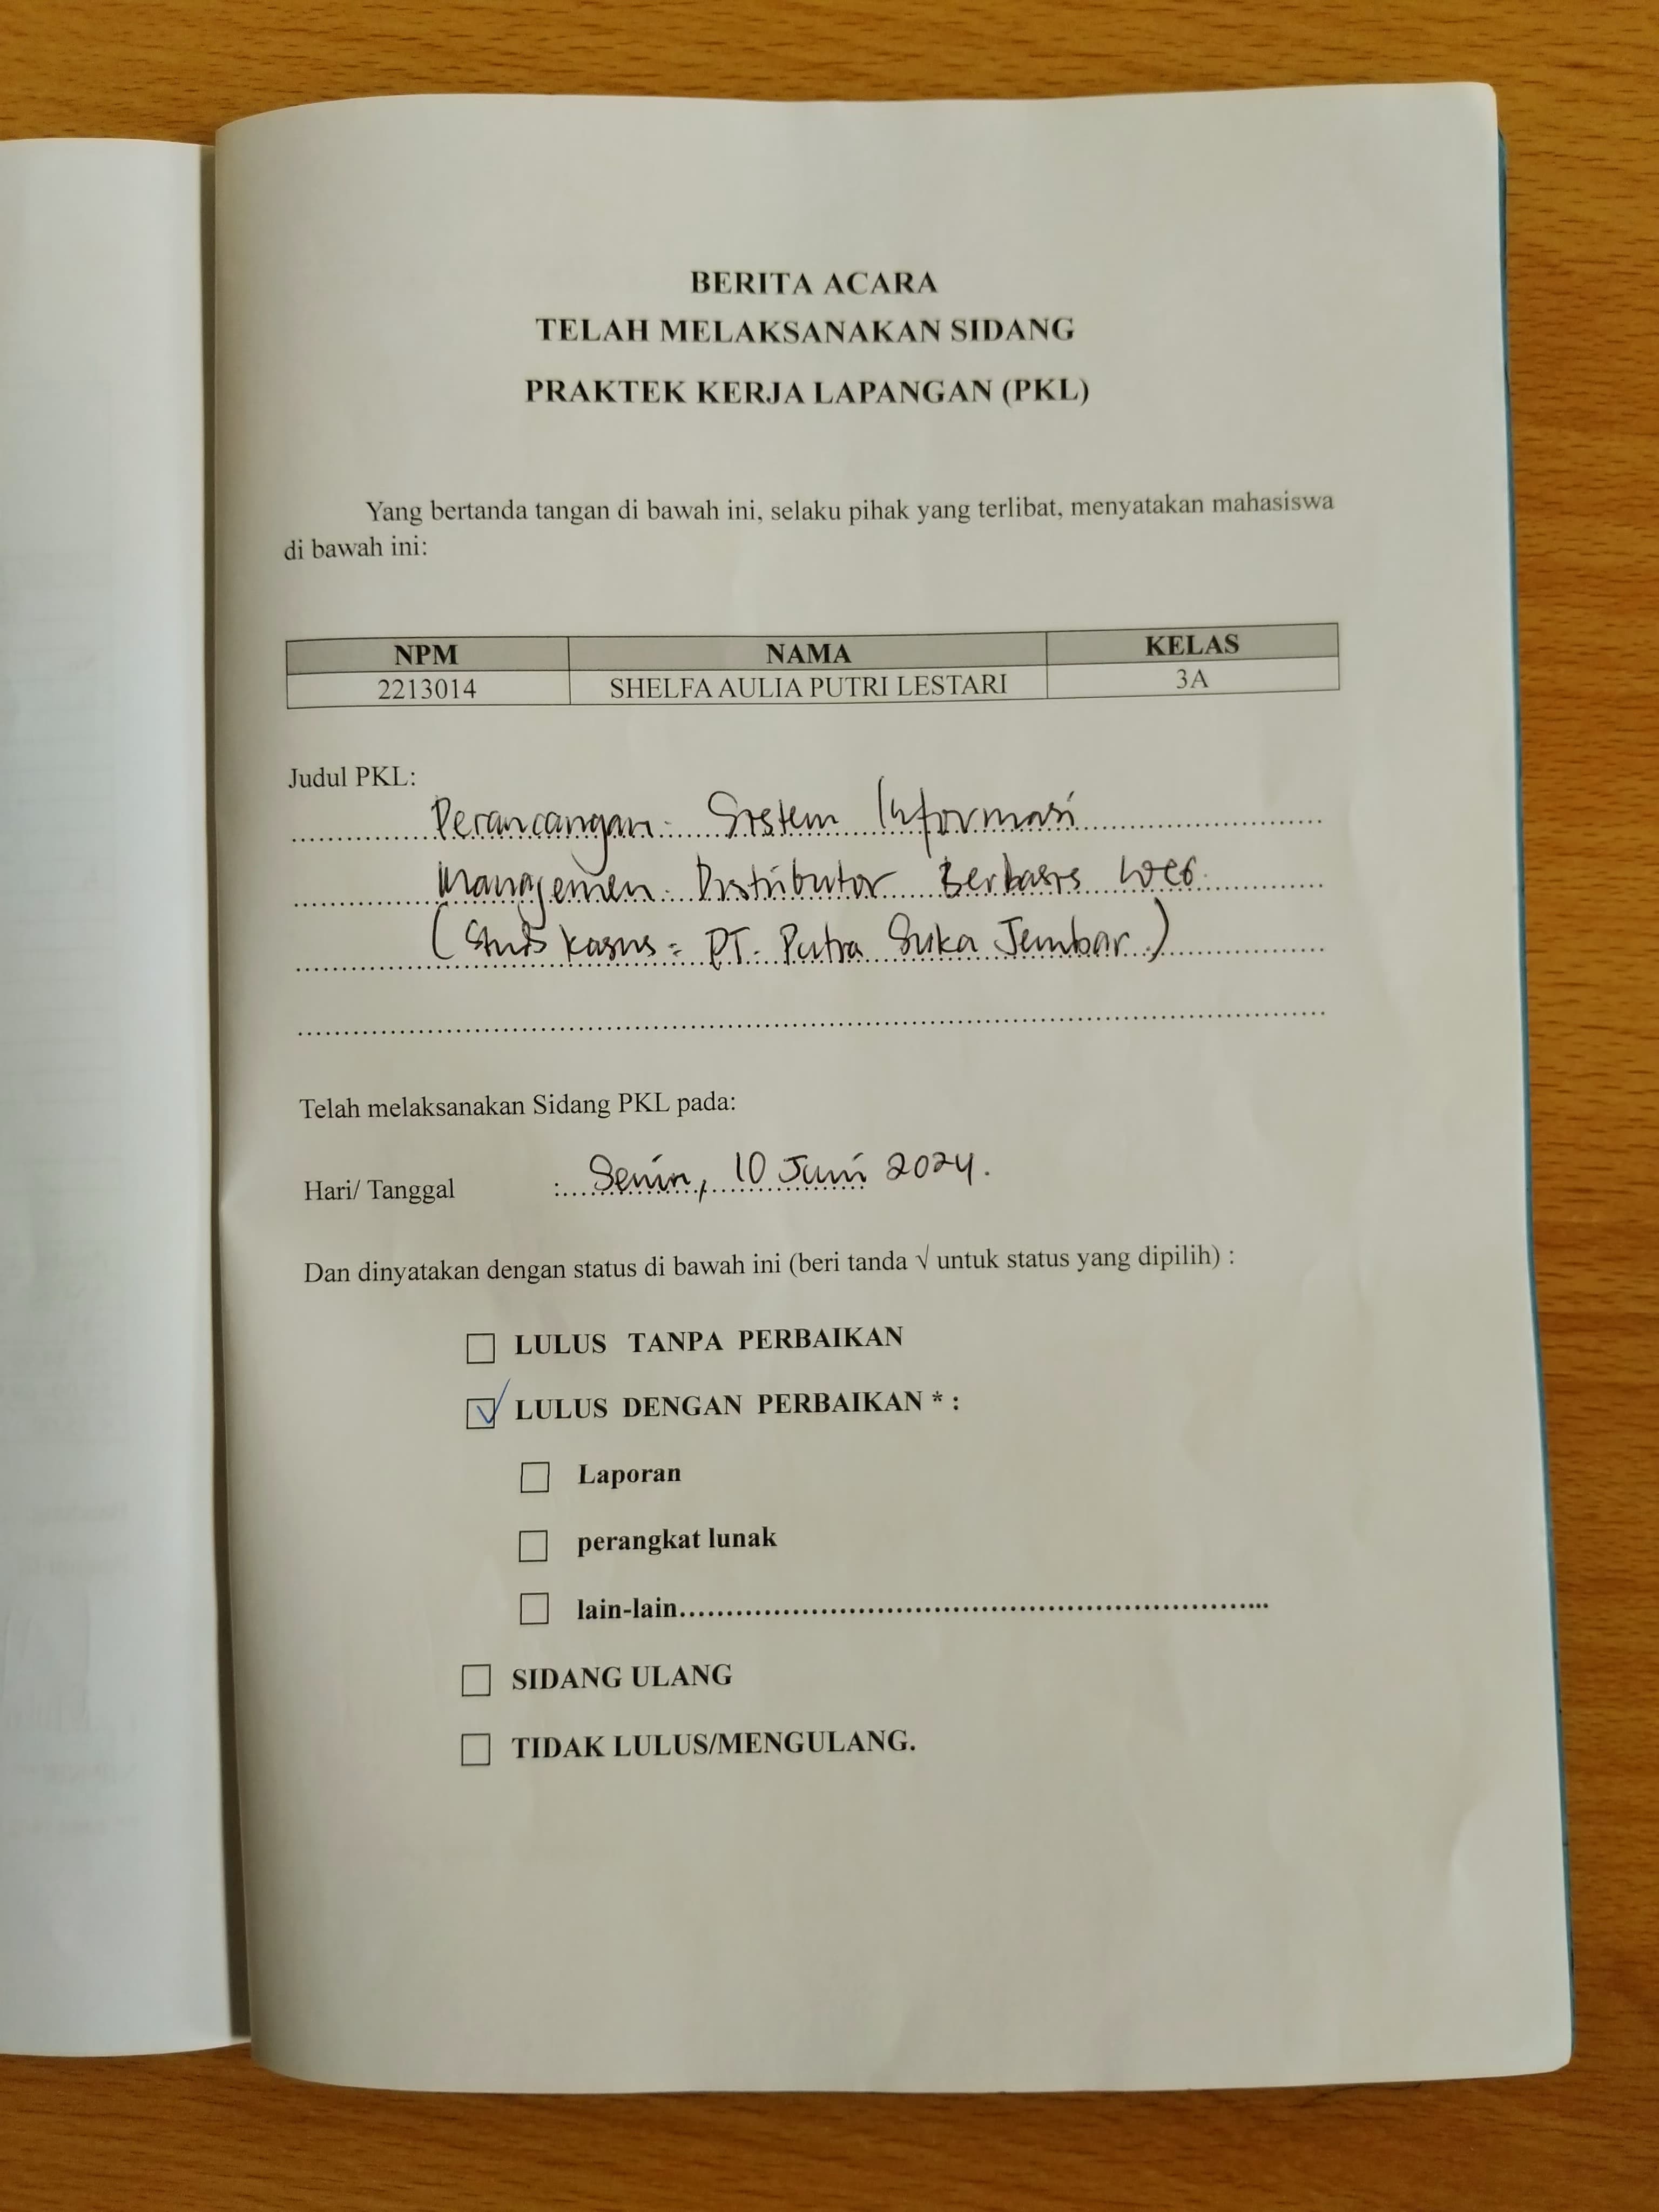 BERITA ACARA
TELAH MELAKSANAKAN SIDANG
PRAKTEK KERJA LAPANGAN (PKL)
Yang bertanda tangan di bawah ini, selaku pihak yang terlibat, menyatakan mahasiswa
di bawah ini:
NPM NAMA KELAS
2213014 SHELFA AULIA PUTRI LESTARI 3A
Judul PKL:
Perancangan Sistem Informasi
Manajemen Distributor Berbasis Web
(Studi Kasus = PT. Putra Suka Jembar)
Telah melaksanakan Sidang PKL pada:
Hari/ Tanggal : Senin, 10 Juni 2024.
Dan dinyatakan dengan status di bawah ini (beri tanda √ untuk status yang dipilih) :
LULUS TANPA PERBAIKAN
☑ LULUS DENGAN PERBAIKAN * :
Laporan
perangkat lunak
lain-lain..................................................................
SIDANG ULANG
TIDAK LULUS/MENGULANG.